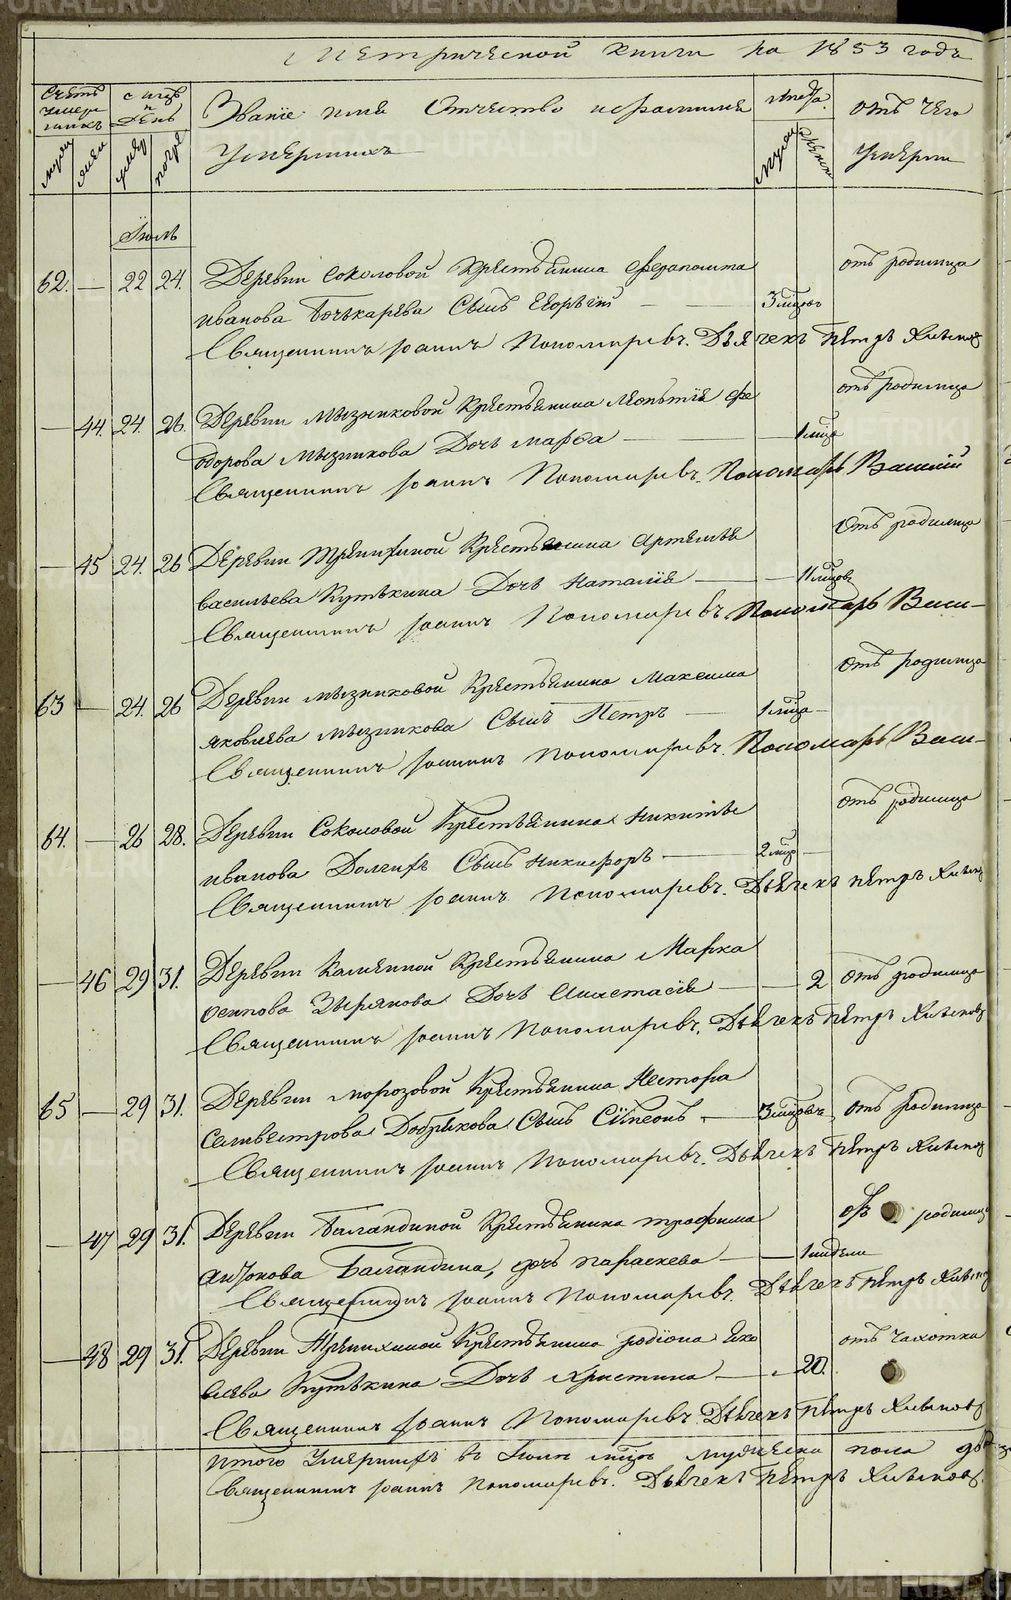 Метрической книги на 1853 годъ
Счетъ умершихъ
мужеска
женска
м-цъ и день
умер
погр
Званіе имя Отчество и фамилія умершихъ
лѣта
мужеска
женска
отъ чего умерли
Іюль
62. — 22 24. Деревни Соколовой Крестьянина Ферапонта отъ родимца
иванова Бочькарева Сынъ Егоръгій — 3 мѣцовъ
Священникъ Іоаннъ Пономаревъ. Дьячекъ Петръ Хлынов
— 44. 24. 26. Деревни Мызниковой Крестьянина Леонтія Фе отъ родимца
дорова Мызникова Дочь Марфа — 1 мѣца
Священникъ Іоаннъ Пономаревъ. Пономарь Василій
— 45 24. 26 Деревни Трепихиной Крестьянина Артемья Отъ родимца
васильева Путькина Дочь Наталія — 11 мѣцовъ
Священникъ Іоаннъ Пономаревъ. Пономарь Васи-
63 — 24. 26 Деревни Мызниковой Крестьянина Максима Отъ родимца
яковлева Мызникова Сынъ Петръ — 1 мѣца —
Священникъ Іоаннъ Пономаревъ. Пономарь Васи-
64. — 26 28. Деревни Соколовой Крестьянина Никиты отъ родимца
иванова Долгихъ Сынъ Никифоръ — 2 мѣц —
Священникъ Іоаннъ Пономаревъ. Дьячекъ Петръ Хлынов
— 46 29 31. Деревни Калининой Крестьянина Марка
осипова Зырянова Дочь Анастасія — 2 отъ родимца
Священникъ Іоаннъ Пономаревъ. Дьячекъ Петръ Хлыновъ
65 — 29 31. Деревни Морозовой Крестьянина Нестора
Селивестрова Добрякова Сынъ Сѵмеонъ — 3 мѣцовъ отъ родимца
Священникъ Іоаннъ Пономаревъ. Дьячекъ Петръ Хлынов
— 47 29 31. Деревни Баландиной Крестьянина Трофима отъ родимц
Антонова Баландина, дочь Параскева — 1 недели
Священникъ Іоаннъ Пономаревъ. Дьячекъ Петръ Хлынов
— 48 29 31. Деревни Трепихиной Крестьянина родіона Яко отъ чахотки
влева Путькина Дочь Христина — 20.
Священникъ Іоаннъ Пономаревъ. Дьячекъ Петръ Хлыновъ
итого Умершихъ въ Іюлѣ мѣцѣ мужеска пола
Священникъ Іоаннъ Пономаревъ. Дьячекъ Петръ Хлыновъ.
METRIKI.GASO-URAL.RU